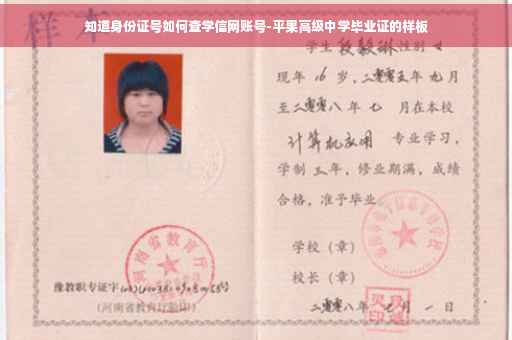 知道身份证号如何查学信网账号-平果高级中学毕业证的样板
样本
学生段毅琳性别女
现年16岁,二零零五年九月
至二零零八年七月在本校
计算机应用专业学习,
学制三年,修业期满,成绩
合格,准予毕业
学校(章)
河南省教育厅
校长(章)
豫教职专证字
(河南省教育厅验印)
二零零八年七月一日